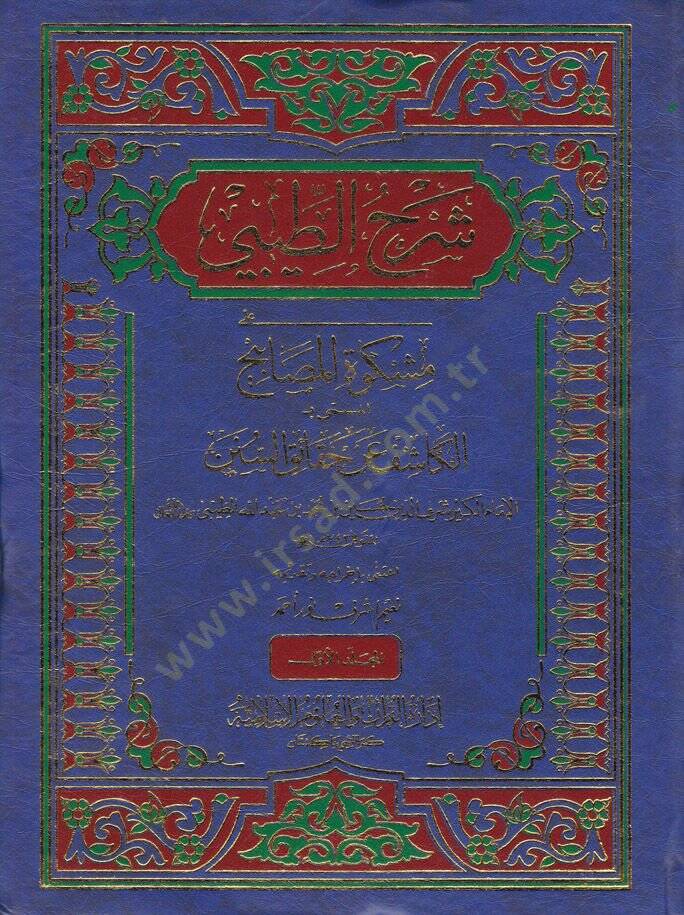 شرح الطيبي
على
مشكوة المصابيح
المسمى بـ
الكاشف عن حقائق السنن
للإمام الكبير شرف الدين حسين بن محمد بن عبد الله الطيبي
المتوفى
نعيم اشرف نور احمد
المجلد الأول
إدارة القرآن والعلوم الإسلامية
كراتشي باكستان
www.irsad.com.tr